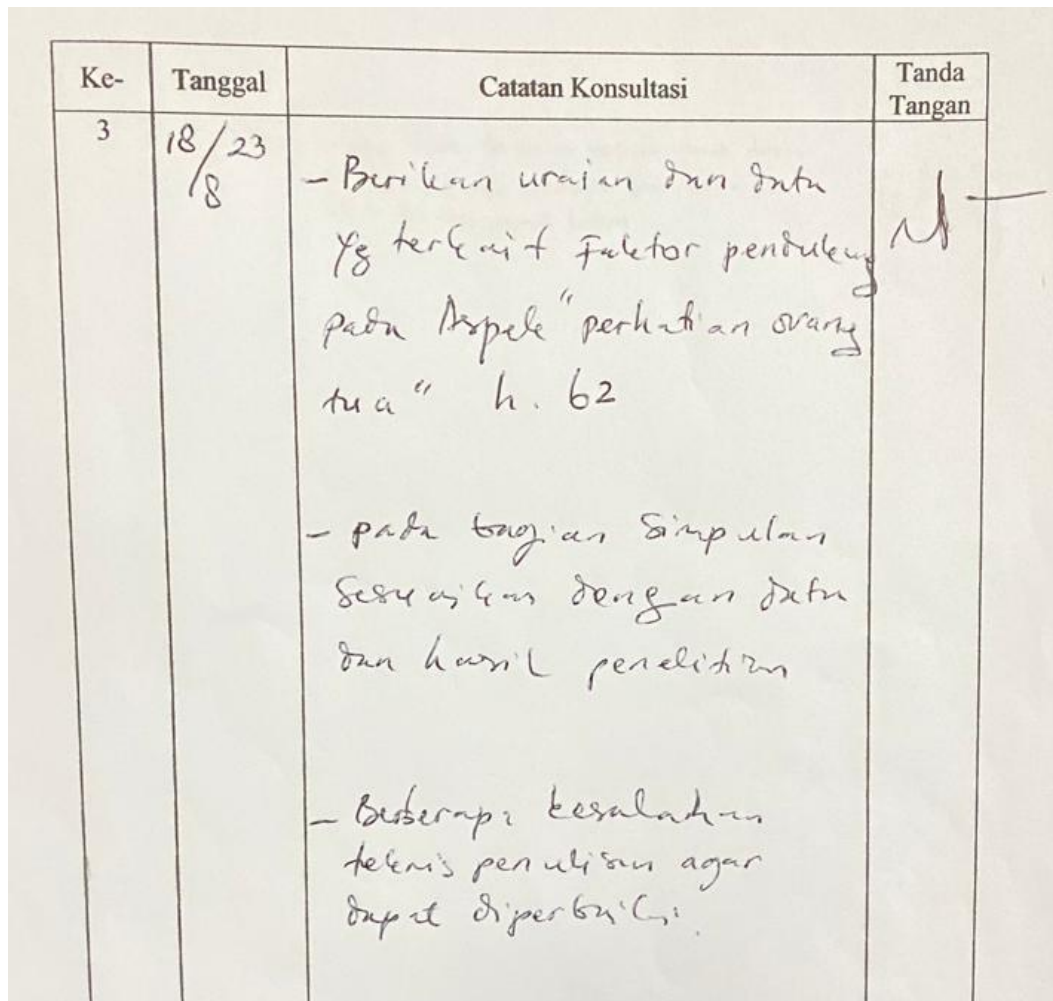 Ke- Tanggal Catatan Konsultasi Tanda Tangan
3 18/8 23
- Berikan uraian dan data
yg terkait Faktor pendukung
pada Aspek "perhatian orang
tua" h. 62
- pada bagian Simpulan
Sesuaikan dengan data
dan hasil penelitian
- Beberapa kesalahan
teknis penulisan agar
dapat diperbaiki.